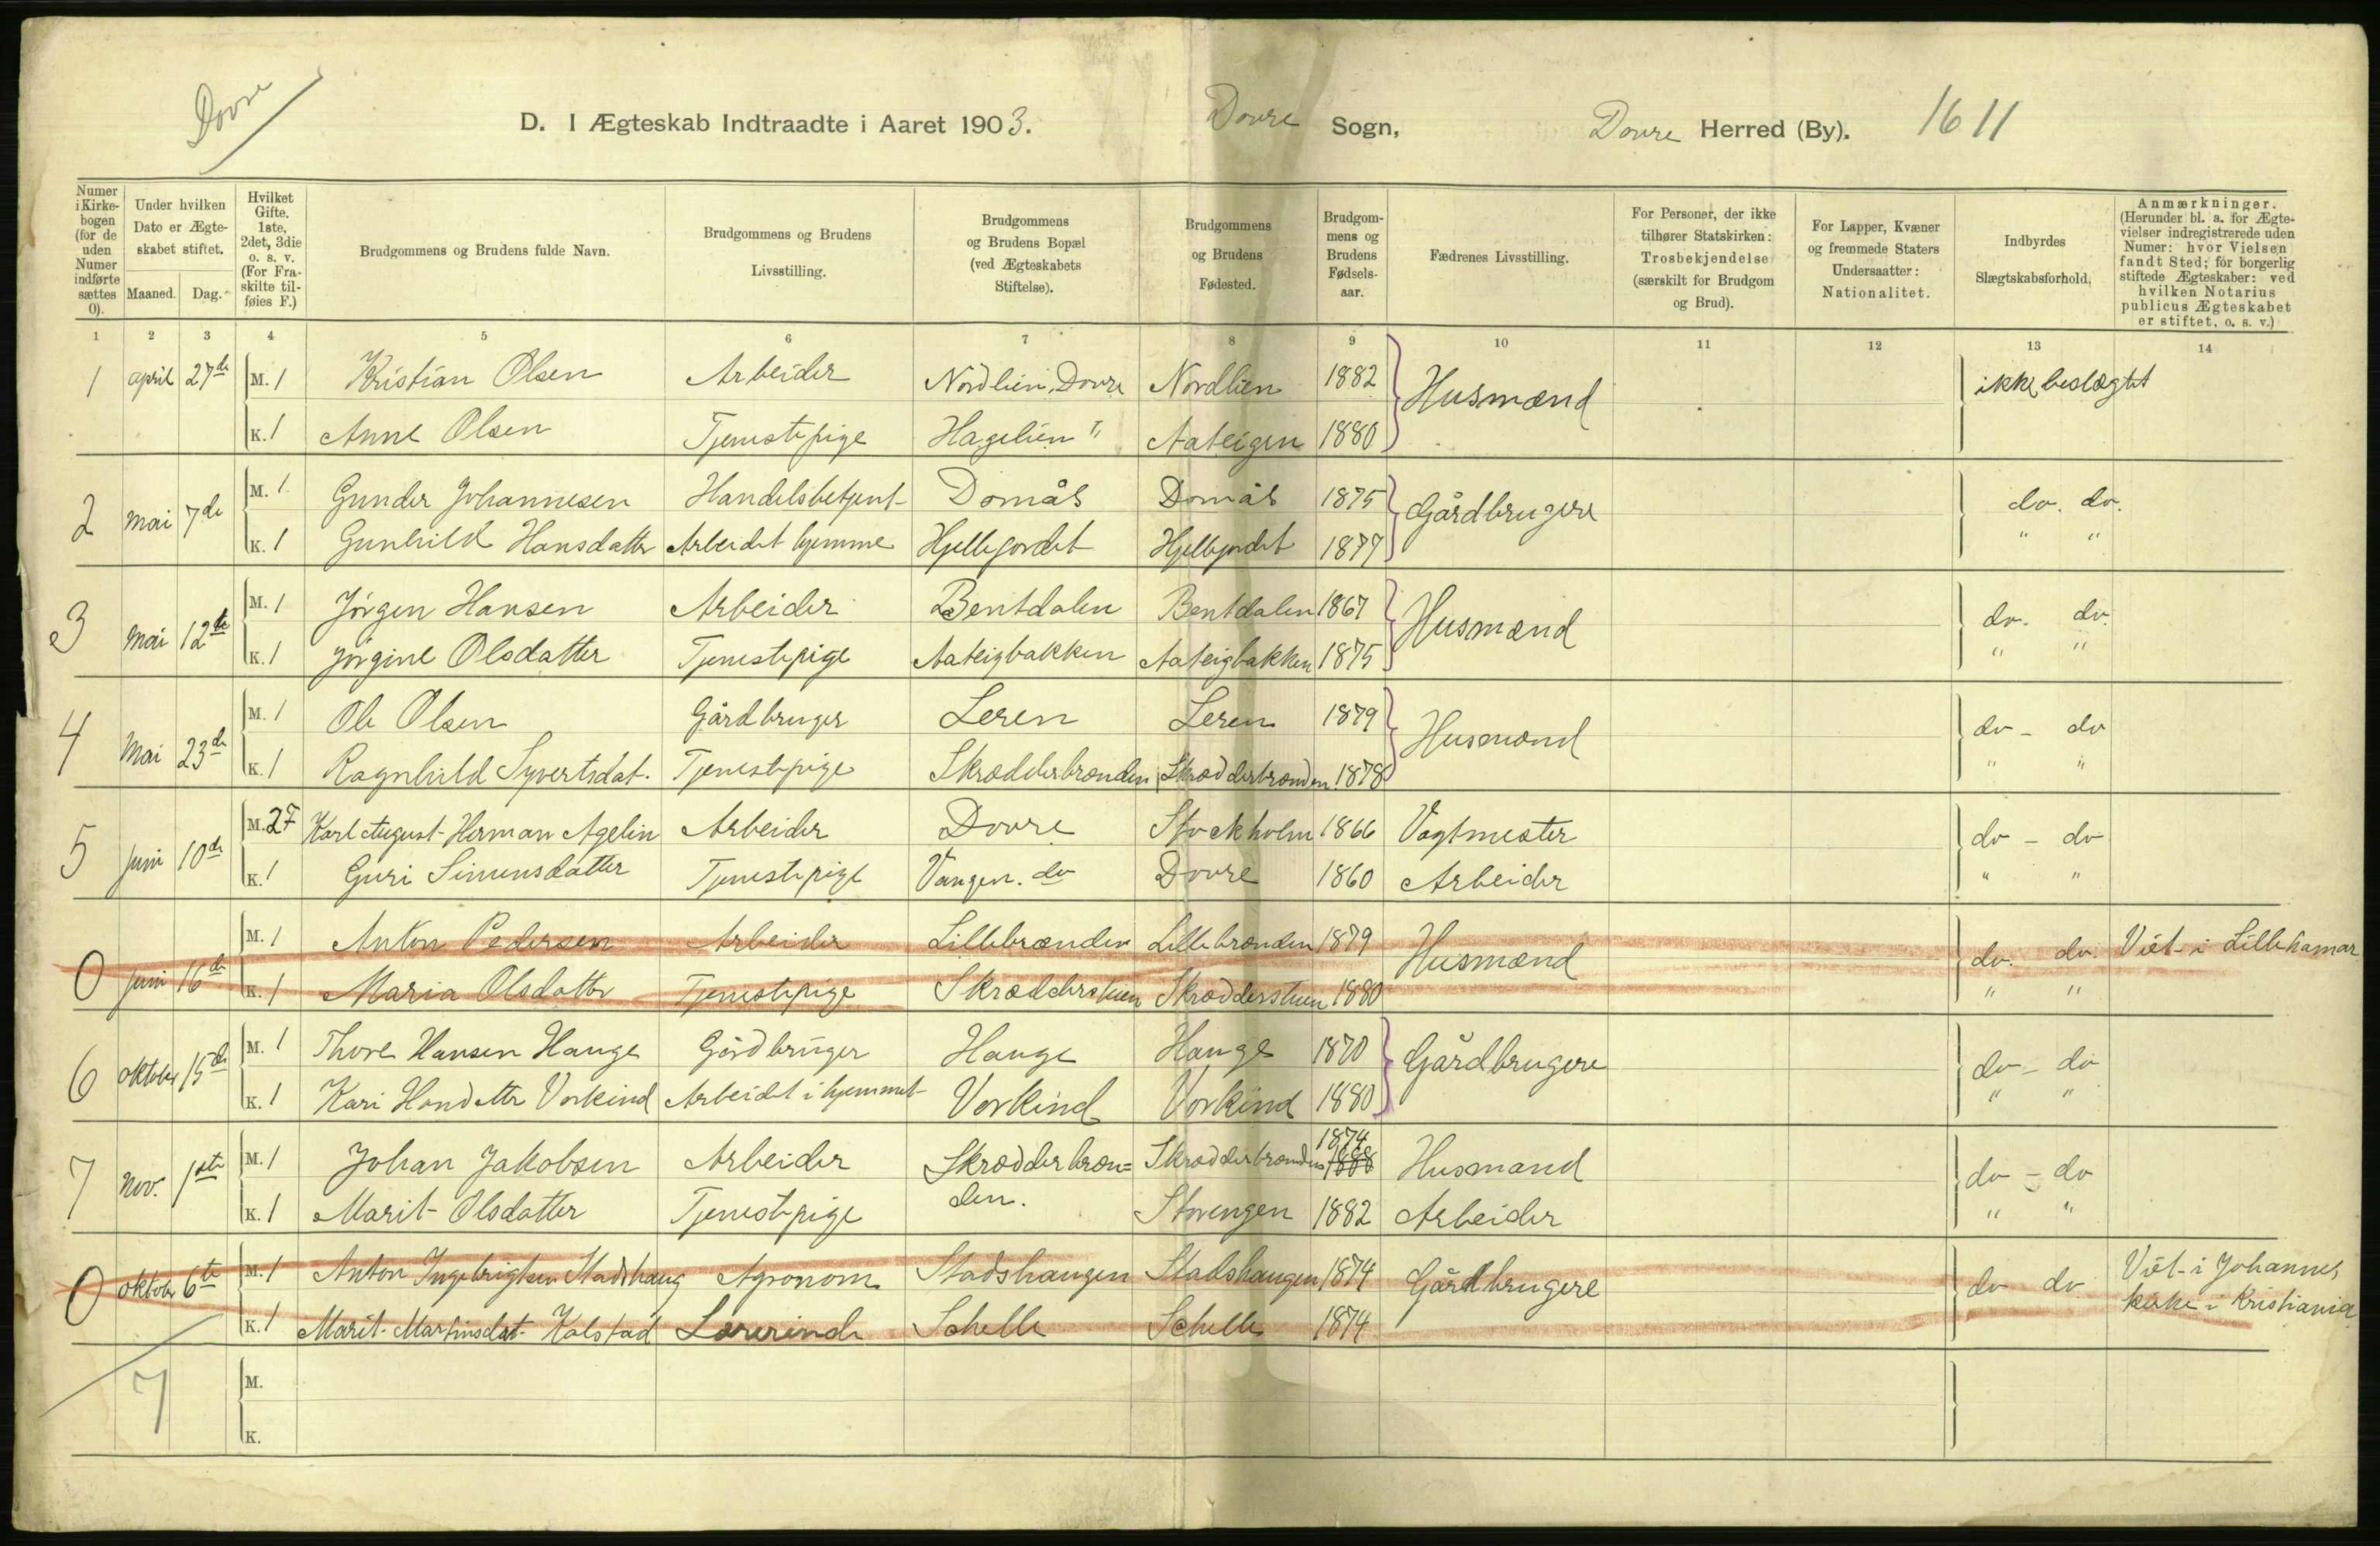 Dovre
D. I Ægteskab Indtraadte i Aaret 1903. Dovre Sogn, Dovre Herred (By). 1611
Numer i Kirkebogen (for de uden Numer indførte sættes 0).
Under hvilken Dato er Ægteskabet stiftet.
Maaned. Dag.
Hvilket Gifte. 1ste, 2det, 3die o. s. v. (For Fraskilte tilføies F.)
Brudgommens og Brudens fulde Navn.
Brudgommens og Brudens Livsstilling.
Brudgommens og Brudens Bopæl (ved Ægteskabets Stiftelse).
Brudgommens og Brudens Fødested.
Brudgommens og Brudens Fødselsaar.
Fædrenes Livsstilling.
For Personer, der ikke tilhører Statskirken: Trosbekjendelse (særskilt for Brudgom og Brud).
For Lapper, Kvæner og fremmede Staters Undersaatter: Nationalitet.
Indbyrdes Slægtskabsforhold.
Anmærkninger. (Herunder bl. a. for Ægtevielser indregistrerede uden Numer: hvor Vielsen fandt Sted; for borgerlig stiftede Ægteskaber: ved hvilken Notarius publicus Ægteskabet er stiftet, o. s. v.)
1 2 3 4 5 6 7 8 9 10 11 12 13 14
1 april 27de M. 1 Kristian Olsen Arbeider Nordlien, Dovre Nordlien 1882 Husmænd ikke beslægtet
K. 1 Anne Olsen Tjenestepige Hagelien " Aateigen 1880
2 Mai 7de M. 1 Gunder Johannesen Handelsbetjent Domås Domås 1875 Gårdbrugere do. do.
K. 1 Gunhild Hansdatter Arbeidet hjemme Hjellejordet Hjellejordet 1877 " "
3 Mai 12te M. 1 Jörgen Hansen Arbeider Bentdalen Bentdalen 1867 Husmænd do. do.
K. 1 Jörgine Olsdatter Tjenestepige Aateigbakken Aateigbakken 1875 " "
4 Mai 23de M. 1 Ole Olsen Gårdbruger Leren Leren 1879 Husmænd do - do
K. 1 Ragnhild Syvertsdat. Tjenestepige Skrædderbrænden Skrædderbrænden 1878 " "
5 juni 10de M. 2F Karl August Herman Agelin Arbeider Dovre Stockholm 1866 Vagtmester do - do
K. 1 Guri Simensdatter Tjenestepige Vangen. do Dovre 1860 Arbeider " "
0 juni 16de M. 1 Anton Pedersen Arbeider Lillebrænden Lillebrænden 1879 Husmænd do. do. Viet i Lillehamar
K. 1 Maria Olsdatter Tjenestepige Skrædderstuen Skrædderstuen 1880 " "
6 oktober 15de M. 1 Thore Hansen Hauge Gårdbruger Hauge Hauge 1870 Gårdbrugere do - do
K. 1 Kari Hansdatter Vorkind Arbeidet i hjemmet Vorkind Vorkind 1880 " "
7 Nov. 1ste M. 1 Johan Jakobsen Arbeider Skrædderbræn= Skrædderbrænden 1874 1888 Husmand do - do
K. 1 Marit Olsdatter Tjenestepige den. Storengen 1882 Arbeider " "
0 oktober 6te M. 1 Anton Ingebrigtsen Stadshaug Agronom Stadshaugen Stadshaugen 1874 Gårdbrugere do do Viet i Johannes
K. 1 Marit Martinsdat. Kolstad Lærerinde Schelle Schelle 1874 kirke i Kristiania
7 M.
K.